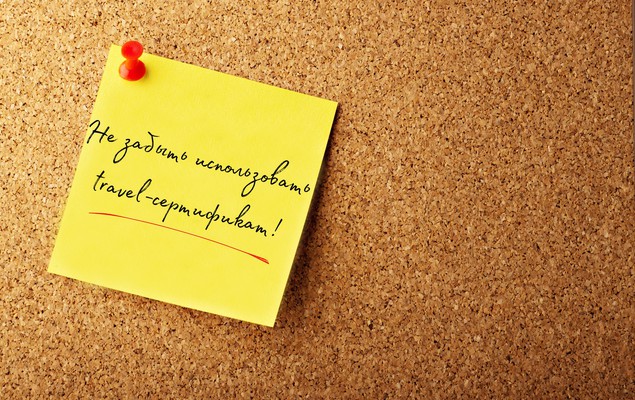 Не забыть использовать
travel-сертификат!